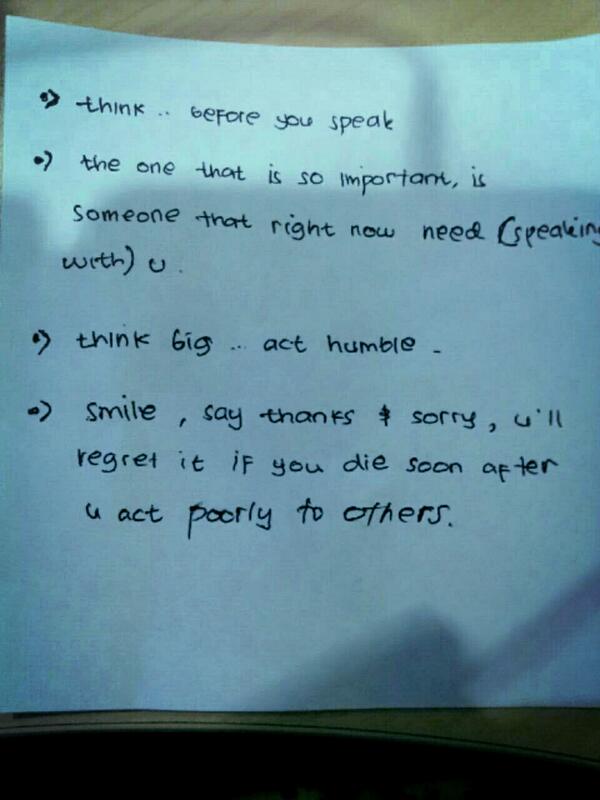 •) think .. before you speak
•) the one that is so important, is
someone that right now need (speaking
with) u.
•) think big .. act humble -
•) smile, say thanks & sorry, u'll
regret it if you die soon after
u act poorly to others.